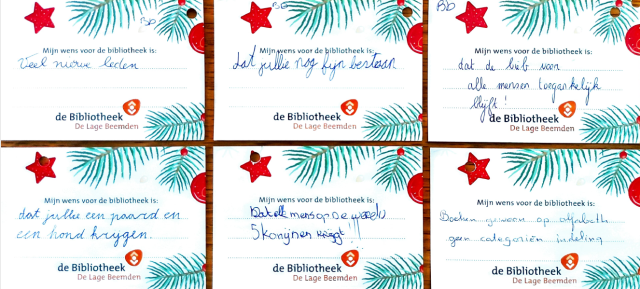 Bb
Mijn wens voor de bibliotheek is:
Veel nieuwe leden
de Bibliotheek
De Lage Beemden
Bb
Mijn wens voor de bibliotheek is:
dat jullie nog fijn bestaan
de Bibliotheek
De Lage Beemden
Bb
Mijn wens voor de bibliotheek is:
dat de bieb voor
alle mensen toegankelijk
blijft!
de Bibliotheek
De Lage Beemden
Mijn wens voor de bibliotheek is:
dat jullie een paard en
een hond krijgen.
de Bibliotheek
De Lage Beemden
Mijn wens voor de bibliotheek is:
Dat elk mens op de wereld
5 konijnen krijgt!
de Bibliotheek
De Lage Beemden
Mijn wens voor de bibliotheek is:
Boeken gewoon op alfabeth
geen categoriën indeling
de Bibliotheek
De Lage Beemden